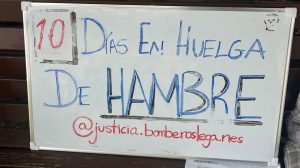 10 DÍAS EN HUELGA
DE HAMBRE
@justicia.bomberoslega.nes